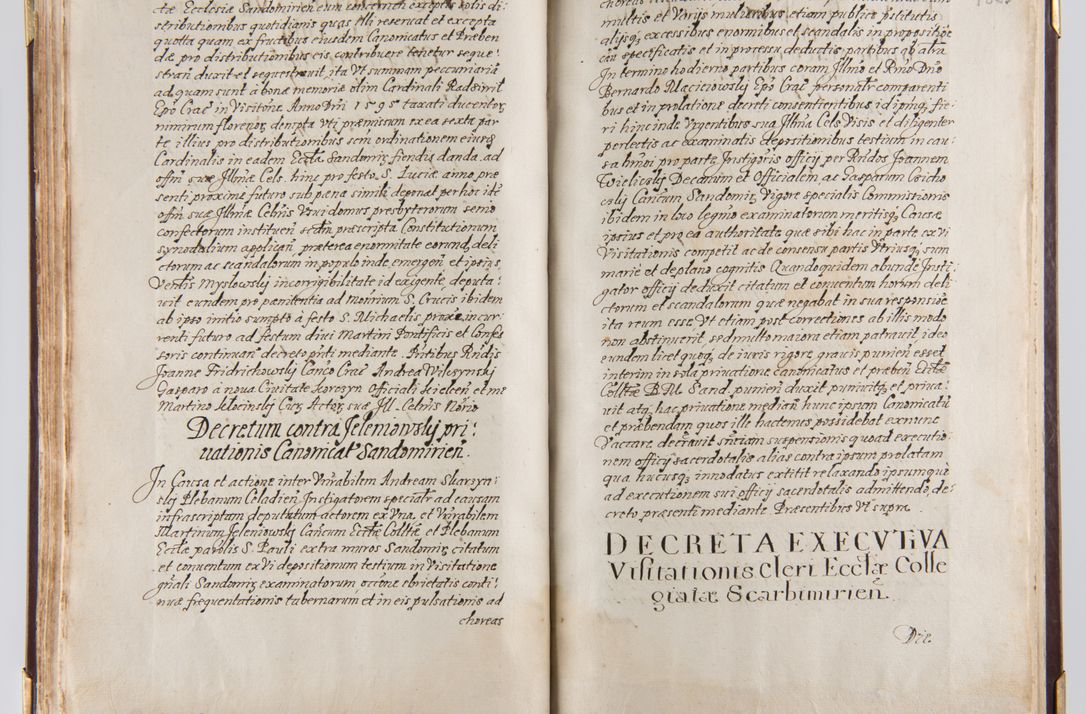 tæ Ecclesiæ Sandomirien eum concernen exceptis solis di:
stributionibus quotidianis quas illi reseruat et excepta
quotta quam ex fructibus eiusdem Canonicatus et Præben
dæ pro distributionibus eis contribuere tenetur seque:
stran duxit et sequestrauit, ita Vt summam peccuniariā
ad quam sunt à bonæ memoriæ olim Cardinali Radziwil
Epō Crac in Visitōne Anno Dnī 1595 taxati ducentor
nimirum florenor, dempta vti præmissum ex ea sexta par
te illius pro distributionibus scdn ordinationem eiusdē
Cardinalis in eadem Ecctā Sandomir fiendis danda, ad
offm suæ Illmæ Cels. hinc pro festo S. Luciæ anno præ
senti proxime futuro sub pœna simili deponat per hoc idē
offm suæ Illmæ Celnis Vsui domus presbyterorum senio
confectorum institueñ scdm præscripta Constitutionum
synodalium applicañ præterea enormitate eorund, deli
ctorum ac scandalorum in populo inde emergeñ et ipsius
Ventis Myslowskij incorrigibilitate id exigente, deputa:
uit eundem pro pænitentia ad Montium S. Crucis ibidem
ab ipso initio sumpto à festo S. Michaelis proxe incur:
renti futuro ad festum diui Martini Pontificis et Confes
soris continuañ decreto pñti mediante. Pñtibus Rndis
Joanne Fridrichowskij Canco Crac Andrea Wilczynskij
Gasparo à noua Ciuitate Korczyn Officiali Kielcen et me
Martino Klocinskij Cur, Actor, suæ Ill. Celnis Nōrio
Decretum contra Jelemowskij pri:
uationis Canonicat Sandomirieñ.
In Causa et actione inter Vnrabilem Andream Skarzyn:
skij Plebanum Celadien, Instigatorem specialr ad causam
infrascriptam deputatum actorem ex Vna, et Vnrabilem
Martinum Jelemowskij Cancum Ecctæ Colltæ et Plebanum
Ecctæ parolis S. Pauli extra muros Sandomir, citatum
et conuentum ex Vi depositionum testium in Visitatione
gñali Sandomir, examinatorum occōne ebrietatis conti:
nuæ frequentationis tabernarum et in eis pulsationis ad
choreas
multis et Varijs mulieribus, etiam publicis pstitutis
alijsq, excessibus enormibus et scandalis in propositiōe
cān specificatis et in processu deductis partibus ab altra
In termino hodierno partibus coram Illmo et Rmo Dno
Bernardo Maciciowskij Epō Crac personalr comparenti
bus et in prolatione decreti consentientibus id ipmq, fie:
ri hinc inde Vrgentibus sua Illma Cels Visis et diligenter
perlectis ac examinatis depositionibus testium in cau:
sa hmoi pro parte Instigoris officij per Rndos Joannem
Wielicskij Decanum et Officialem, ac Gasparum Cricho
cskij Cancum Sandomir, Vigore specialis Commissionis
ibidem in loco legmo examinatorum meritisq, Causæ
ipsius et pro ea authoritate quæ sibi hac in parte ex vi
Visitationis competit ac de consensu partis Vtriusq, sum
marie et de plano cognitis Quandoquidem abunde Insti:
gator officij deduxit citatum et conuentum horum deli
ctorum et scandalorum quæ negabat in sua responsiōe
ita reum esse, Vt etiam post correctiones ab illis modo
non abstinuerit, sed multo maiora etiam patrauit, ideo
eundem licet quoq, de iuris rigore grauis punien esset
interim in sola priuatione canonicatus et præben Ecctæ
Colltæ B.M. Sand, punien duxit, puniuitq, et priua:
uit atq, hac priuatione median hunc ipsum Canonicatū
et præbendam quos ille hactenus possidebat ex nunc
Vaccare decreuit sñtiam suspensionis quoad executio:
nem officij sacerdotalis alias contra ipsum prolatam
qua hucusq, innodatus extitit relaxando ipsumqui
ad executionem sui officij sacerdotalis admittendo, de:
creto præsenti mediante Præsentibus Vt supra
DECRETA EXECVTIVA
Visitationis Cleri Ecclæ Colle
giatæ Scarbimirieñ
Die